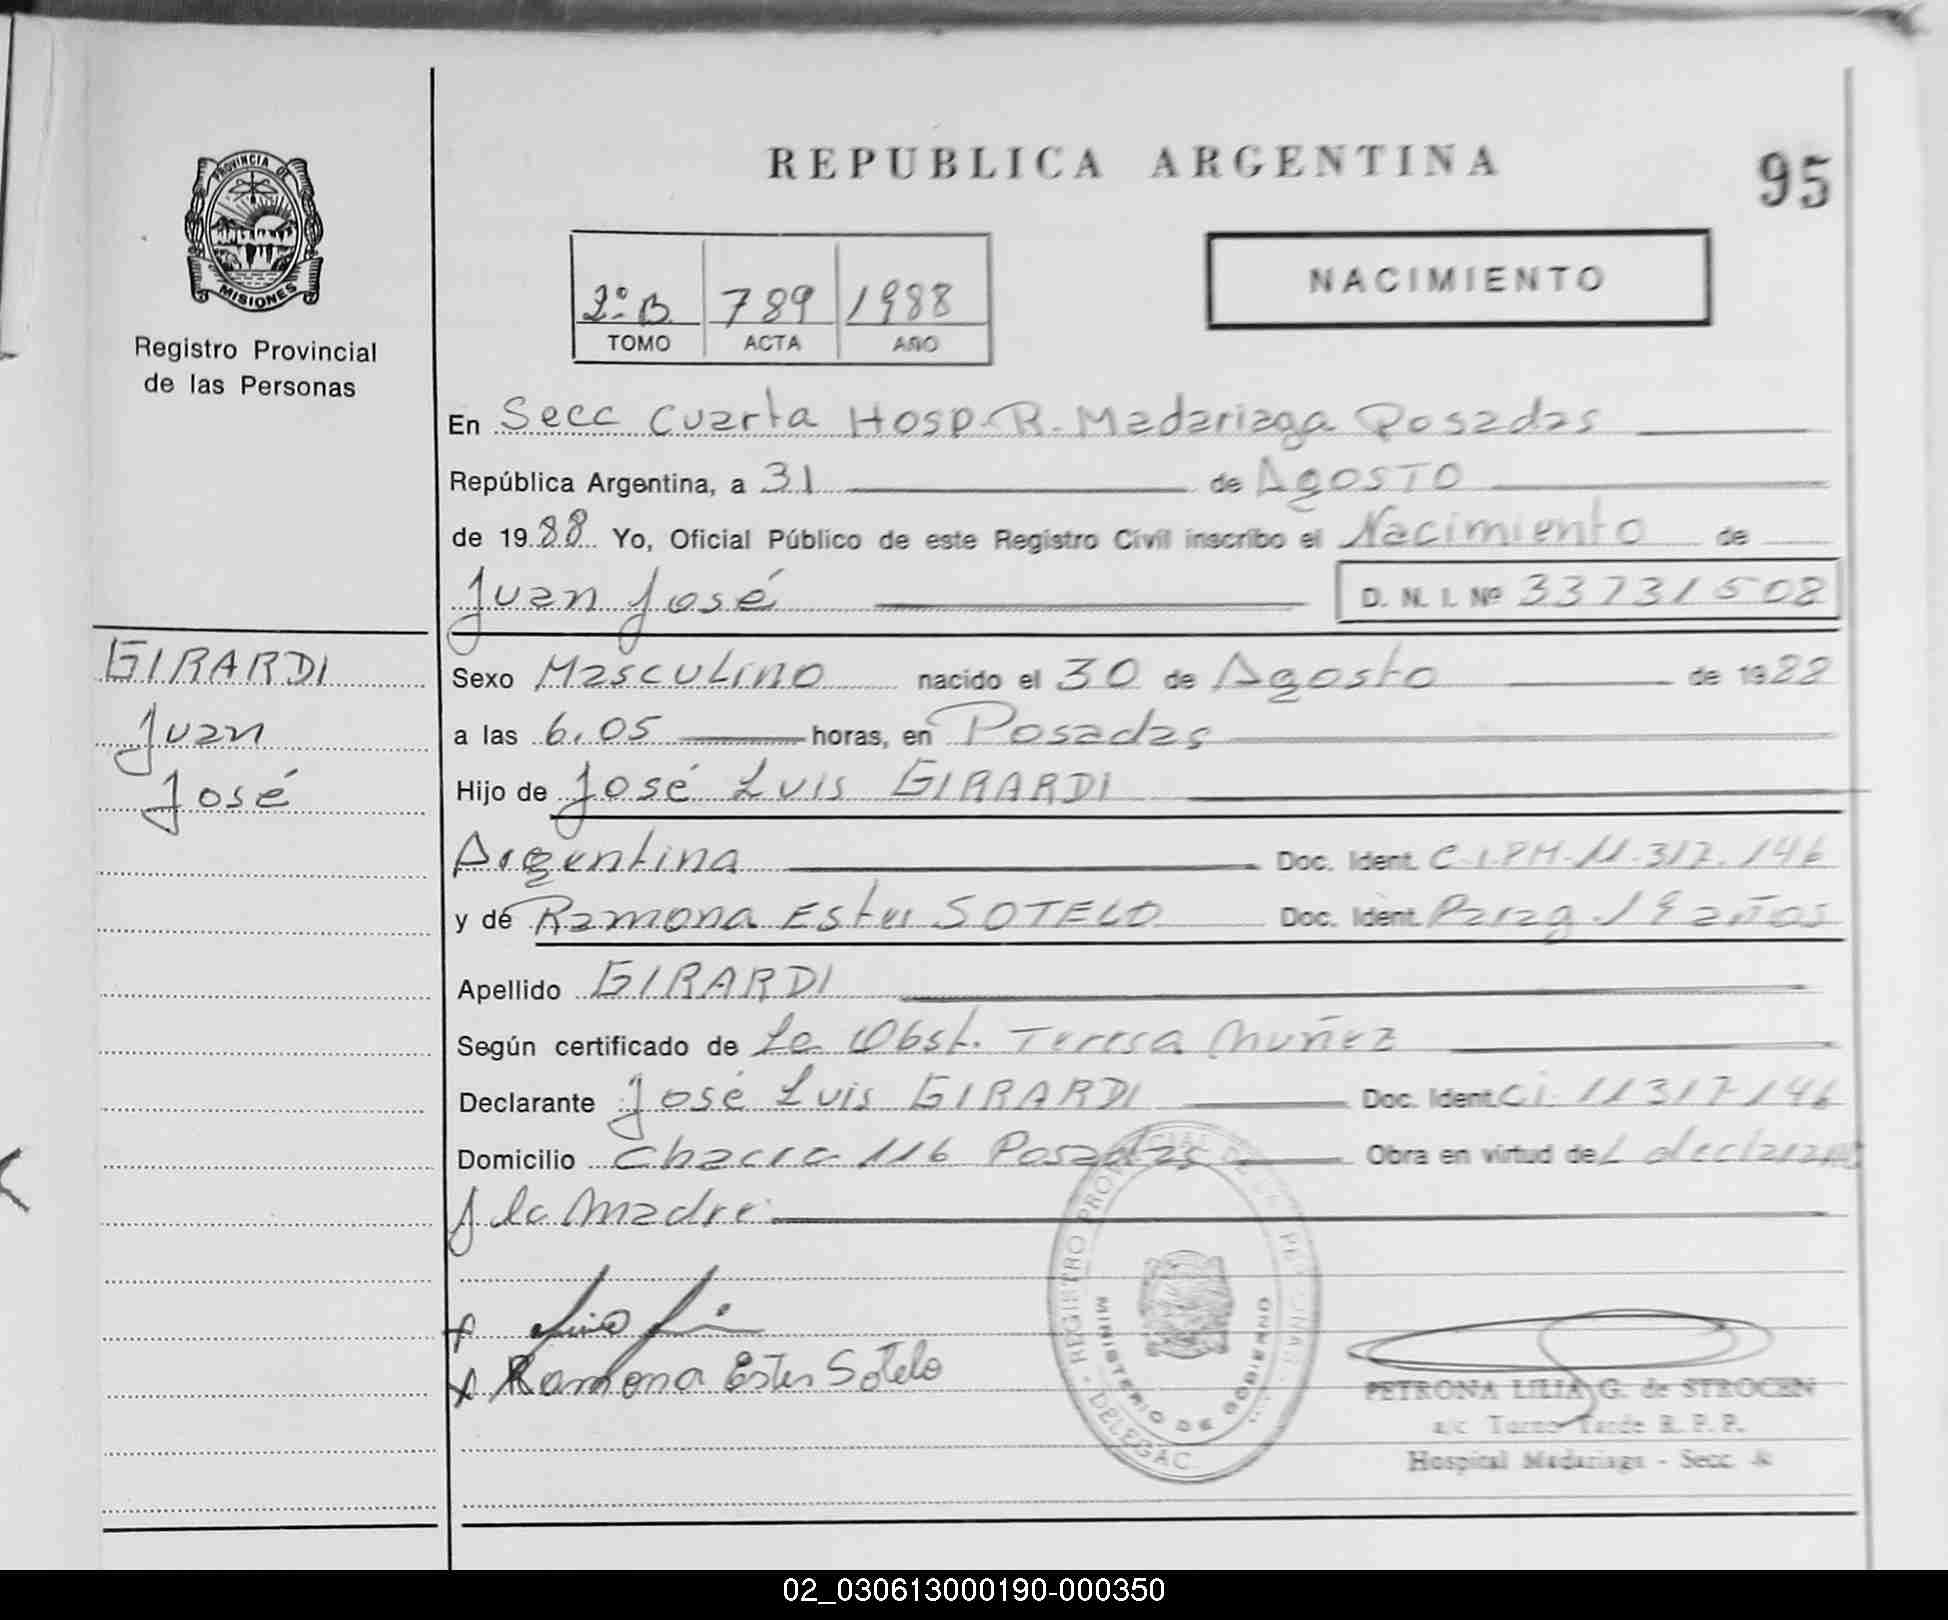 REPUBLICA ARGENTINA
95
PROVINCIA DE MISIONES
Registro Provincial
de las Personas
NACIMIENTO
2º B 789 1988
TOMO ACTA AÑO
En Secc Cuarta Hosp. R. Madariaga Posadas
República Argentina, a 31 de Agosto
de 1988 Yo, Oficial Público de este Registro Civil inscribo el Nacimiento de
Juan José D. N. I. Nº 33731508
GIRARDI
Juan
José
Sexo Masculino nacido el 30 de Agosto de 1988
a las 6,05 horas, en Posadas
Hijo de José Luis GIRARDI
Argentina Doc. Ident. C.I.PM.11.317.146
y de Ramona Ester SOTELO Doc. Ident. Parag. 19 años
Apellido GIRARDI
Según certificado de La Obst. Teresa Muñez
Declarante José Luis GIRARDI Doc. Ident. Ci. 11317146
Domicilio Chacra 116 Posadas Obra en virtud de
la Madre
Ramona Ester Sotelo
REGISTRO PROVINCIAL DE LAS PERSONAS - DELEGAC.
MINISTERIO DE GOBIERNO
PETRONA LILIA G. de STROCEN
a/c Turno Tarde R. P. P.
Hospital Madariaga - Secc.
02_030613000190-000350